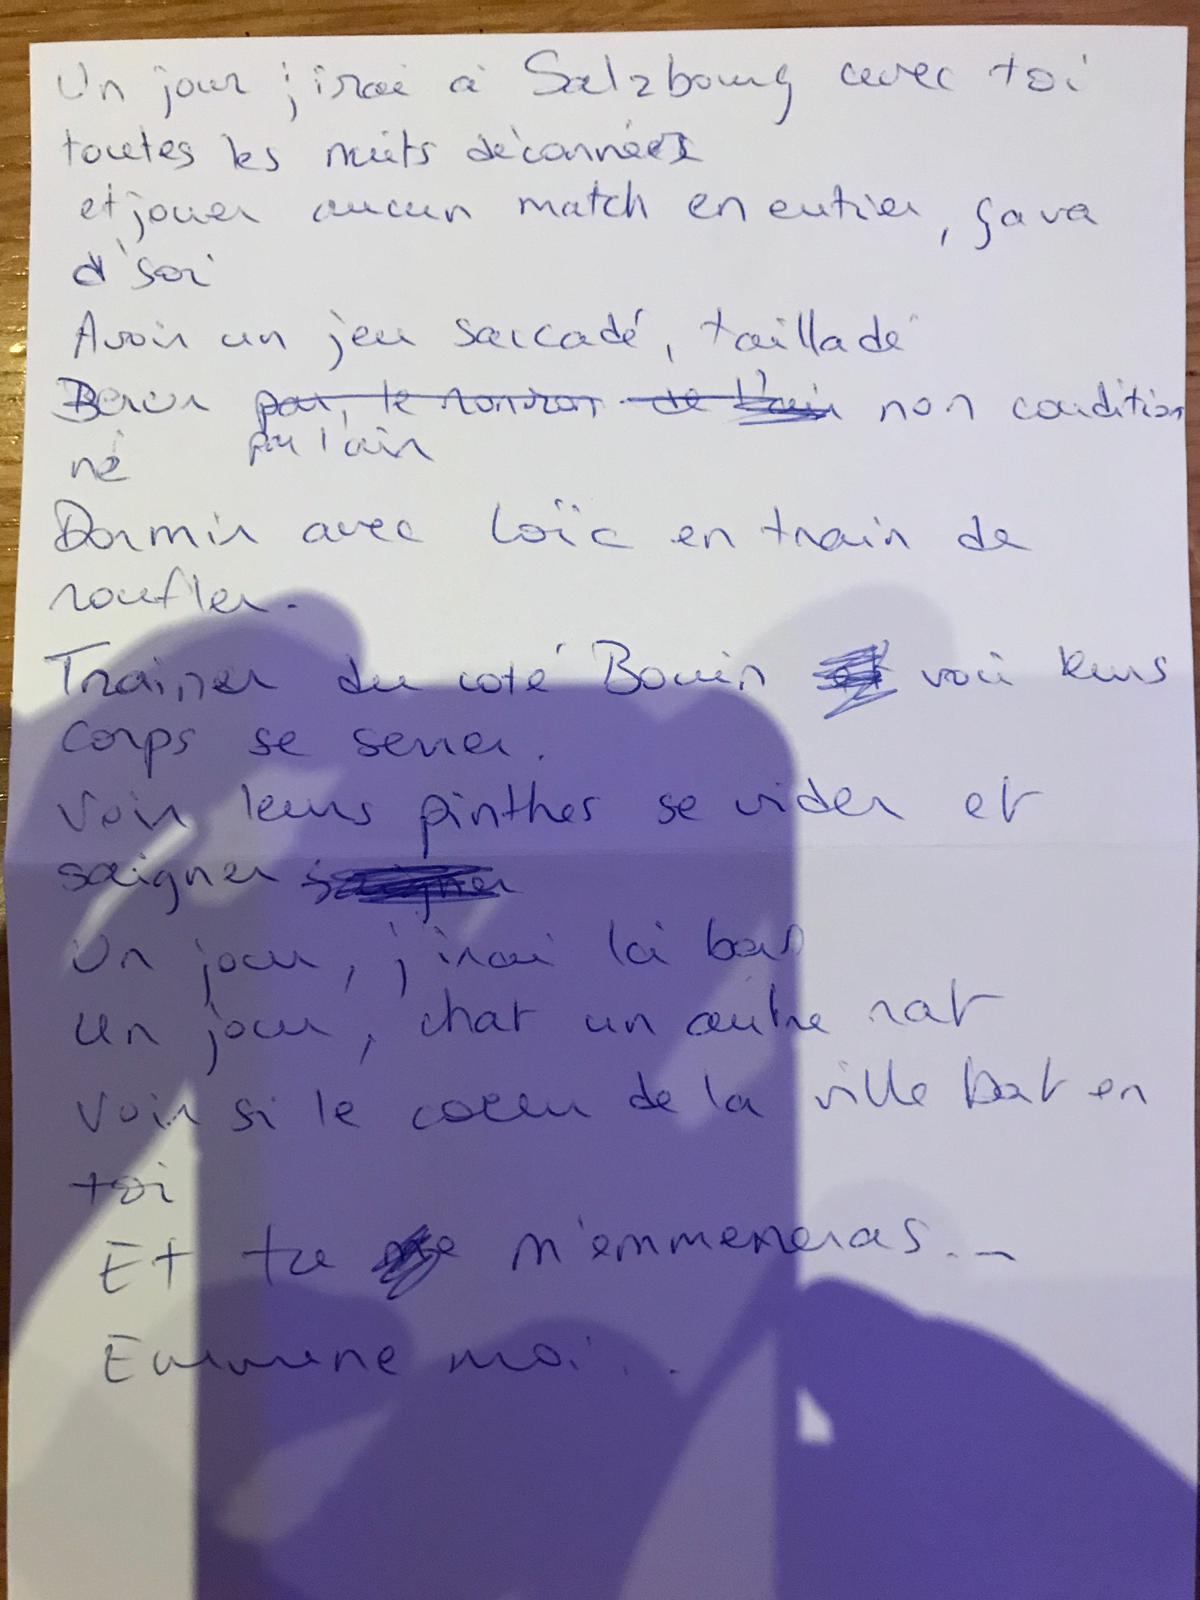 Un jour j'irai à Salzbourg avec toi
toutes les nuits déconnées
et jouer aucun match en entier, ça va
d'soi
Avoir un jeu saccadé, taillade
par, le ronron de l'air non condition
né par l'air
Dormir avec Loïc en train de
roufler.
Trainer du coté Bouin voir leurs
corps se serrer.
Voir leurs pinthes se vider et
saigner saigner
Un jour, j'irai là bas
un jour, chat un autre rat
Voir si le coeur de la ville bat en
toi
Et tu m'emmeneras...
Emmene moi...